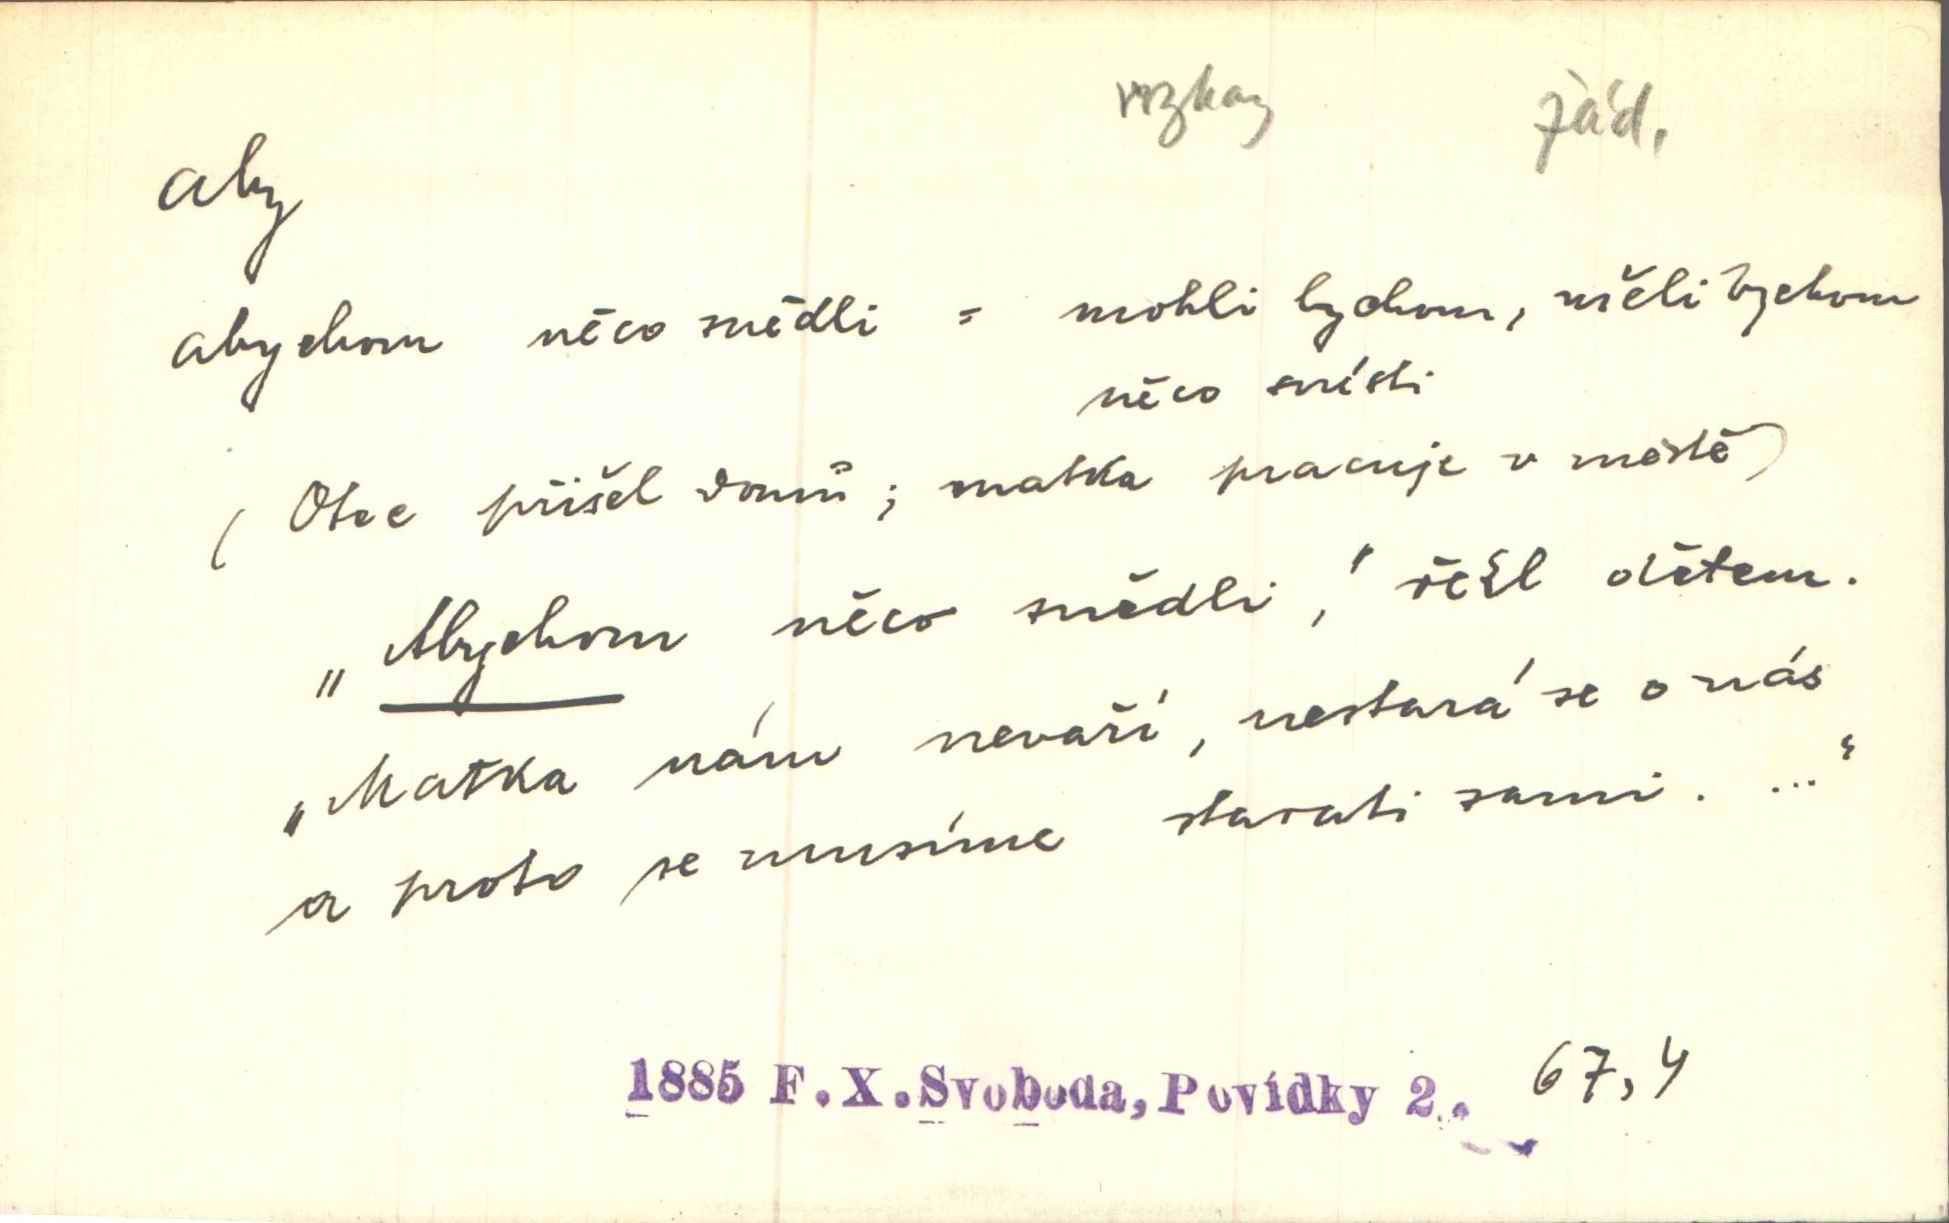 žád.
aby
abychom něco snědli = mohli bychom, měli bychom
něco snísti
(Otec přišel domů; matka pracuje v městě)
„Abychom něco snědli," řekl dětem.
„Matka nám nevaří, nestará se o nás
a proto se musíme starati sami. ..."
1885 F.X.Svoboda, Povídky 2. 67,4